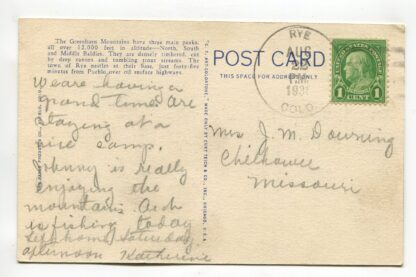 The Greenhorn Mountains have three main peaks,
all over 12,000 feet in altitude—North, South
and Middle Baldies. They are densely timbered, cut
by deep canons and tumbling trout streams. The
town of Rye nestles at their base, just forty-five
minutes from Pueblo over oil surface highways.
We are having a
grand time & are
staying at a
nice camp.
Johnny is really
enjoying the
mountains. Arch
is fishing today
Left home Saturday
afternoon Katherine
POST CARD
THIS SPACE FOR ADDRESS ONLY
RYE
AUG
COLO.
UNITED STATES POSTAGE
1 CENT 1
Mrs J. M. Downing
Chilhowee
Missouri